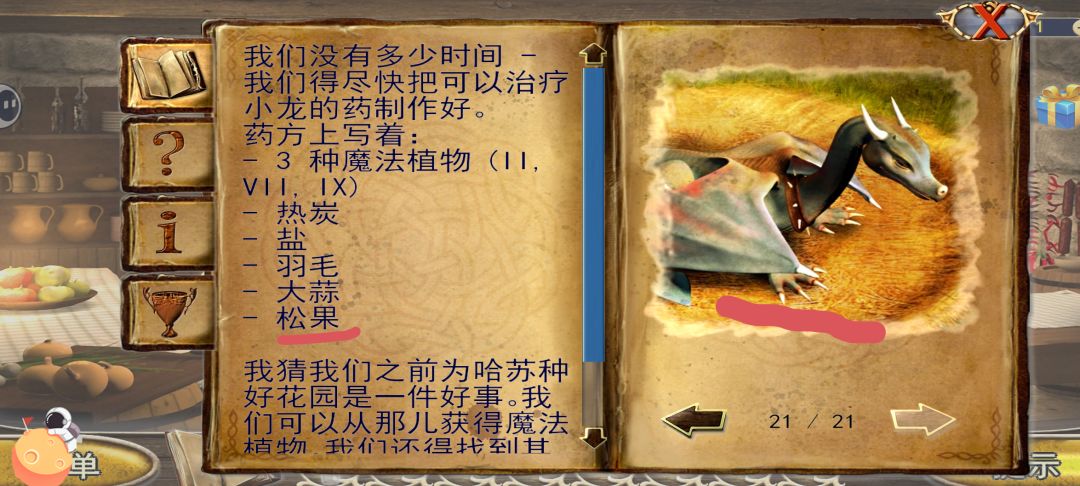 我们没有多少时间 -
我们得尽快把可以治疗
小龙的药制作好。
药方上写着:
- 3 种魔法植物 (II,
VII, IX)
- 热炭
- 盐
- 羽毛
- 大蒜
- 松果
我猜我们之前为哈苏种
好花园是一件好事。我
们可以从那儿获得魔法
植物 我们还得找到其
21 / 21
1
单
示